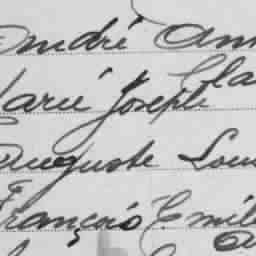 André
Marie Joseph
Auguste Lou
François Emil